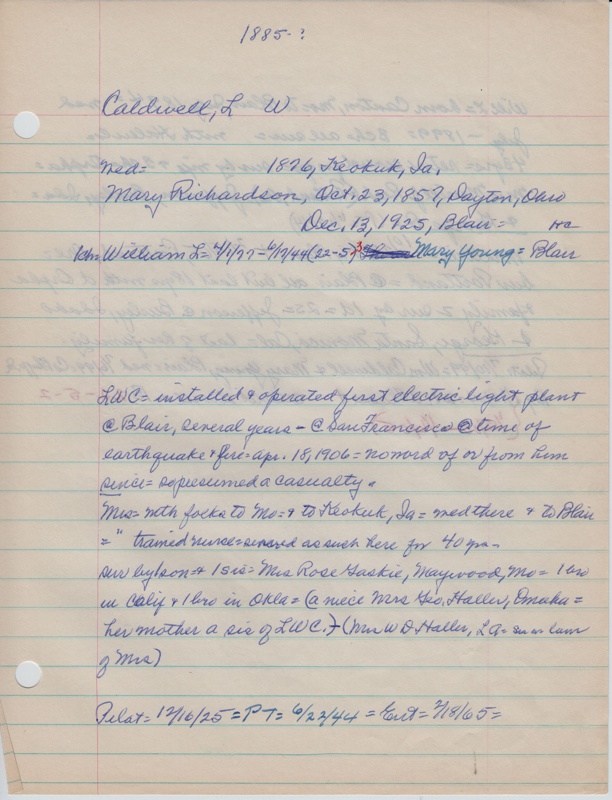 1885-?
Caldwell, L W
med= 1876, Keokuk, Ia.
Mary Richardson, Oct. 23, 1857, Dayton, Ohio
Dec. 13, 1925, Blair= HC
1ch= William L= 4/1/77- 6/17/44 (22-5) 3 Mary Young= Blair
LWC= installed & operated first electric light plant
@ Blair, several years - @ San Francisco @ time of
earthquake & fire= Apr. 18, 1906= no word of or from him
since= so presumed a casualty.
Mrs= with folks to Mo= & to Keokuk, Ia= med there & to Blair
= " trained nurse= served as such here for 40 yrs-
sur by 1 son= & 1 sis= Mrs Rose Gaskie, Maywood, Mo= 1 bro
in Calif & 1 bro in Okla= (a niece Mrs Geo. Haller, Omaha=
her mother a sis of LWC.) (Mrs W D Haller, = sis in law
of Mrs)
Pilot= 12/16/25 = PT= 6/22/44 = Ent= 2/18/65=